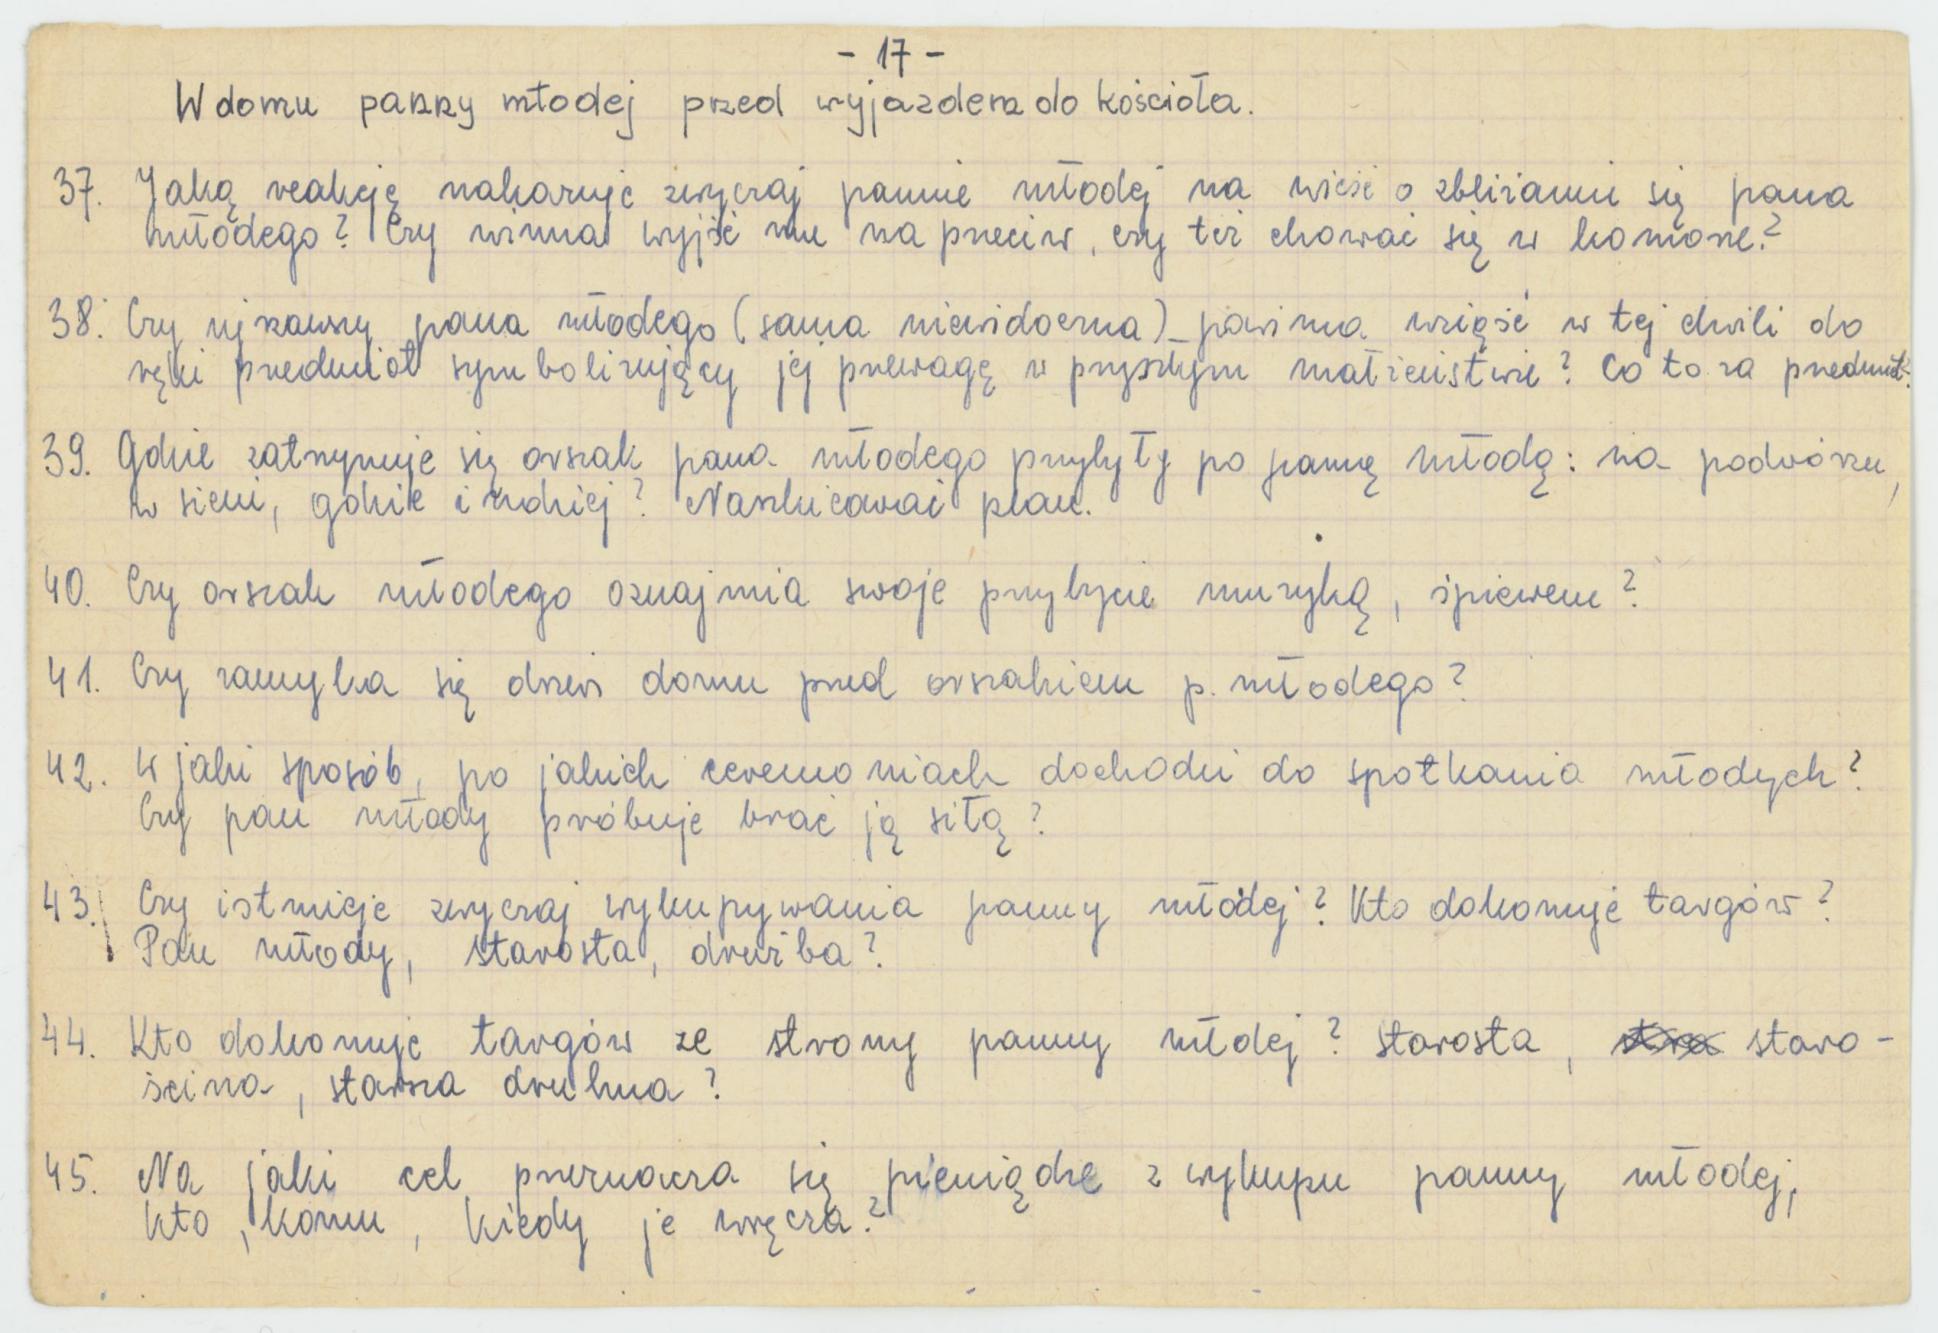 - 17 -
W domu panny młodej przed wyjazdem do kościoła.
37. Jaką reakcję nakazuje zwyczaj pannie młodej na wieść o zbliżaniu się pana
młodego? Czy winna wyjść mu na przeciw, czy też chować się w komorze?
38. Czy ujrzawszy pana młodego (sama niewidoczna) powinna wziąść w tej chwili do
ręki przedmiot symbolizujący jej przewagę w przyszłym małżeństwie? Co to za przedmiot?
39. Gdzie zatrzymuje się orszak pana młodego przybyły po pannę młodą: na podwórzu,
w sieni, gdzie indziej? Naszkicować plan.
40. Czy orszak młodego oznajmia swoje przybycie muzyką, śpiewem?
41. Czy zamyka się drzwi domu przed orszakiem p. młodego?
42. W jaki sposób, po jakich ceremoniach dochodzi do spotkania młodych?
Czy pan młody próbuje brać ją siłą?
43. Czy istnieje zwyczaj wykupywania panny młodej? Kto dokonuje targów?
Pan młody, starosta, drużba?
44. Kto dokonuje targów ze strony panny młdej? starosta, staro-
ścina, starsza druhna?
45. Na jaki cel przeznacza się pieniądze z wykupu panny młodej,
kto, komu, kiedy je wręcza?